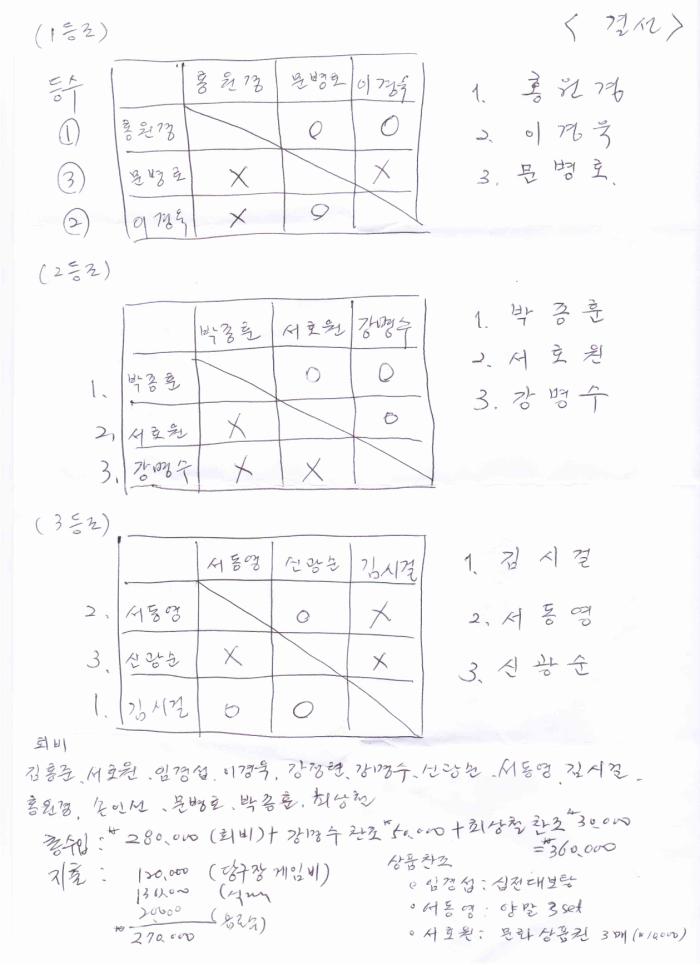 (1등조)
< 결선 >
등수 홍원경 문병호 이경욱
① 홍원경 O O
③ 문병호 X X
② 이경욱 X O
1. 홍원경
2. 이경욱
3. 문병호.
(2등조)
박종훈 서호원 강명수
1. 박종훈 O O
2. 서호원 X O
3. 강명수 X X
1. 박종훈
2. 서호원
3. 강명수
(3등조)
서동영 신광순 김시걸
2. 서동영 O X
3. 신광순 X X
1. 김시걸 O O
1. 김시걸
2. 서동영
3. 신광순
회비
김홍준, 서호원, 임경섭, 이경욱, 강정현, 강명수, 신광순, 서동영, 김시걸,
홍원경, 손인선, 문병호, 박종훈, 최상철
총수입 : ₩280,000 (회비) + 강명수 찬조 ₩50,000 + 최상철 찬조 ₩30,000
= ₩360,000
지출 : 120,000 (당구장 게임비)
130,000
20,000 (음료수)
₩ 270,000
상품찬조
임경섭 : 십전대보탕
서동영 : 양말 3 set
서호원 : 문화상품권 3매 (₩10,000)